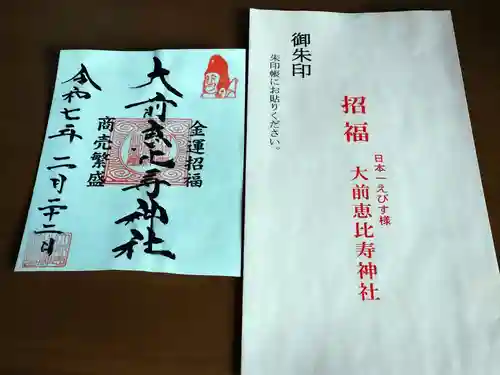 御朱印
朱印帳にお貼りください。
招福
日本一えびす様
大前恵比寿神社
金運招福
大前恵比寿神社
商売繁盛
令和七年二月二十二日